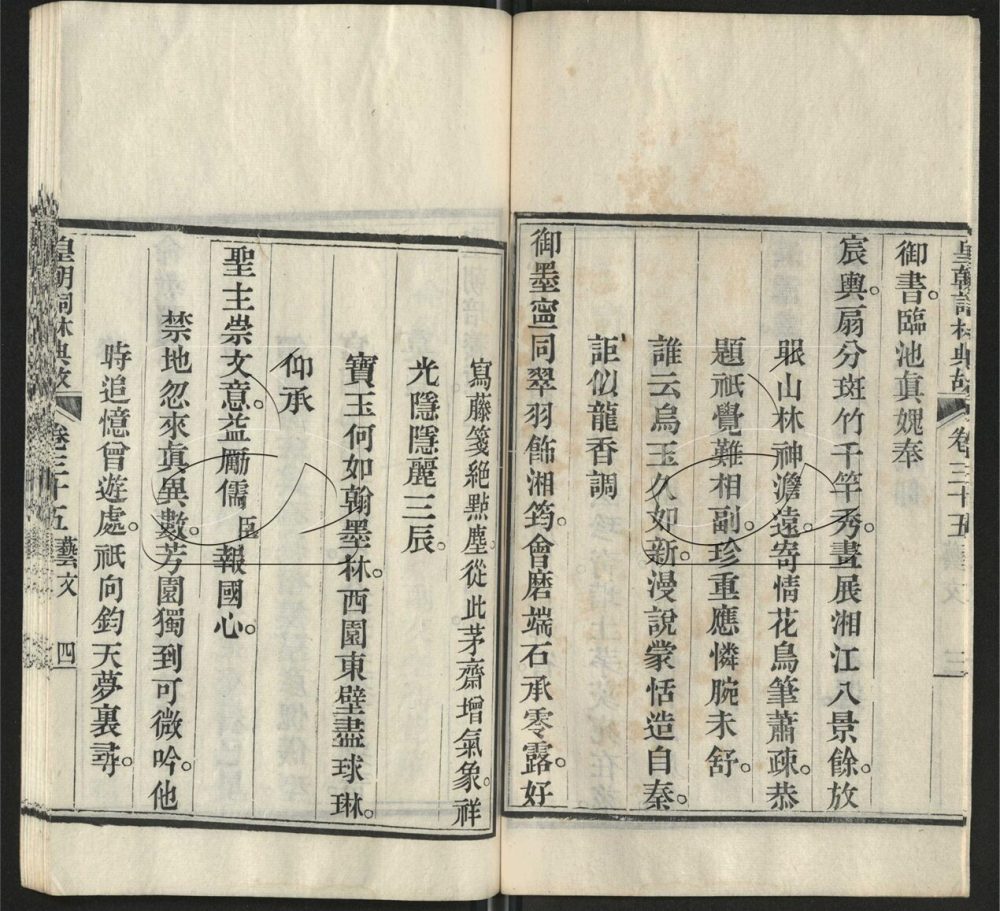 皇朝詞林典故 卷三十五 藝文 三
御書臨池眞媿奉
宸輿。扇分斑竹千竿秀。畫展湘江八景餘。放
眼山林神澹遠。寄情花鳥筆蕭疎。恭
題祇覺難相副。珍重應憐腕未舒。
誰云烏玉久如新。漫說蒙恬造自秦。
詎似龍香調
御墨。寧同翠羽飾湘筠。會磨端石承零露。好
寫藤箋絕點塵。從此茅齋增氣象。祥
光隱隱麗三辰。
寶玉何如翰墨林。西園東壁盡球琳。
仰承
聖主崇文意。益勵儒臣報國心。
禁地忽來眞異數。芳園獨到可微吟。他
時追憶曾遊處。祇向鈞天夢裏尋。
皇朝詞林典故 卷三十五 藝文 四